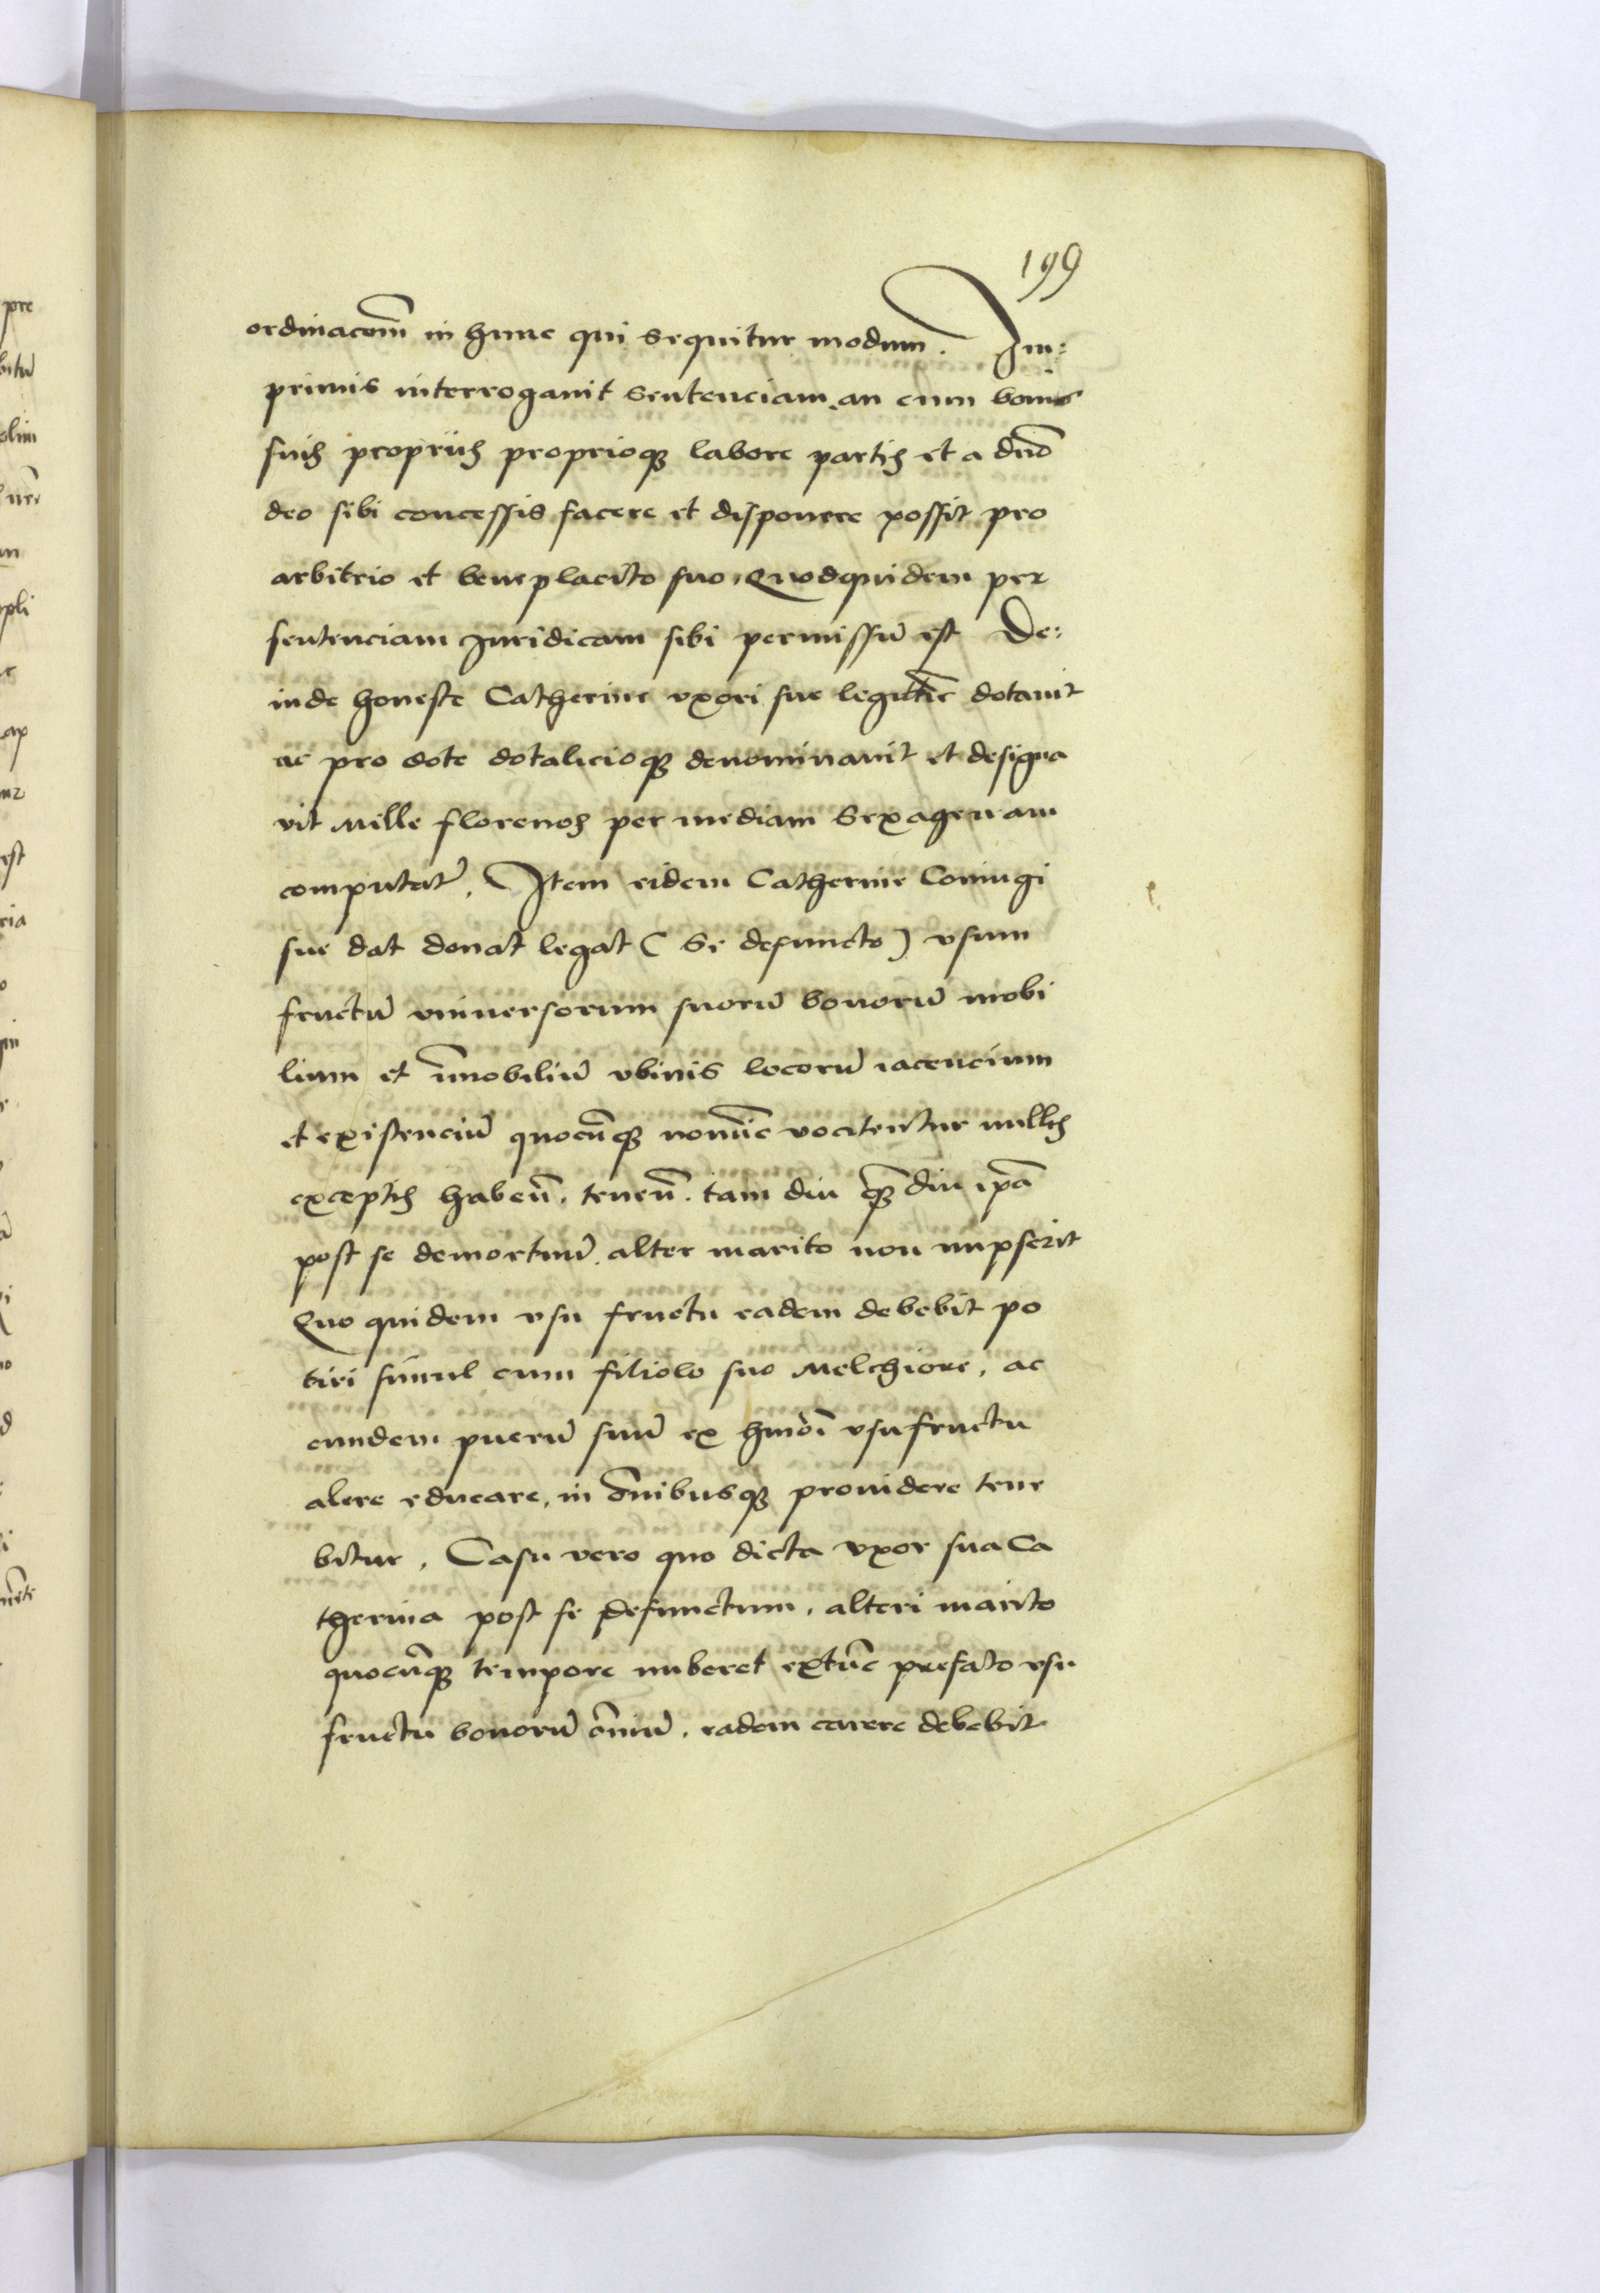 199
ordinacom̄ in hunc qui sequitur modum. Im:
primis interrogauit sentenciam, an cum bonis
suis propriis proprioq; labore partis et a dno
deo sibi concessis facere et disponere possit pro
arbitrio et beneplacito suo, Quodquidem per
sentenciam Iuridicam sibi permissū est De:
inde honeste Catherine vxori sue legittīe dotauit
ac pro dote dotalicioq; denominauit et designa
vit Mille florenos per mediam sexagenam
computatꝭ, Item eidem Catherine Coniugi
sue dat donat legat ( se defuncto ) vsum
fructū vniuersorum suorū bonorū mobi
lium et īmobiliū vbiuis locorū iacencium
et existenciū quocūq; nomīe vocitentur nullis
exceptis habeñ. teneñ. tam diu q̄diu ipā
post se demortuū alter marito non nupserit
Quo quidem vsu fructu eadem debebit po
tiri simul cum filiolo suo Melchiore, ac
eundem puerū suū ex hmōi vsufructu
alere educare, in ōnibusq; prouidere tene
bitur, Casu vero quo dicta vxor sua Ca
therina post se defunctum, alteri marito
quocūq; tempore nuberet extūc prefato vsu
fructu bonorū ōniū, eadem carere debebit